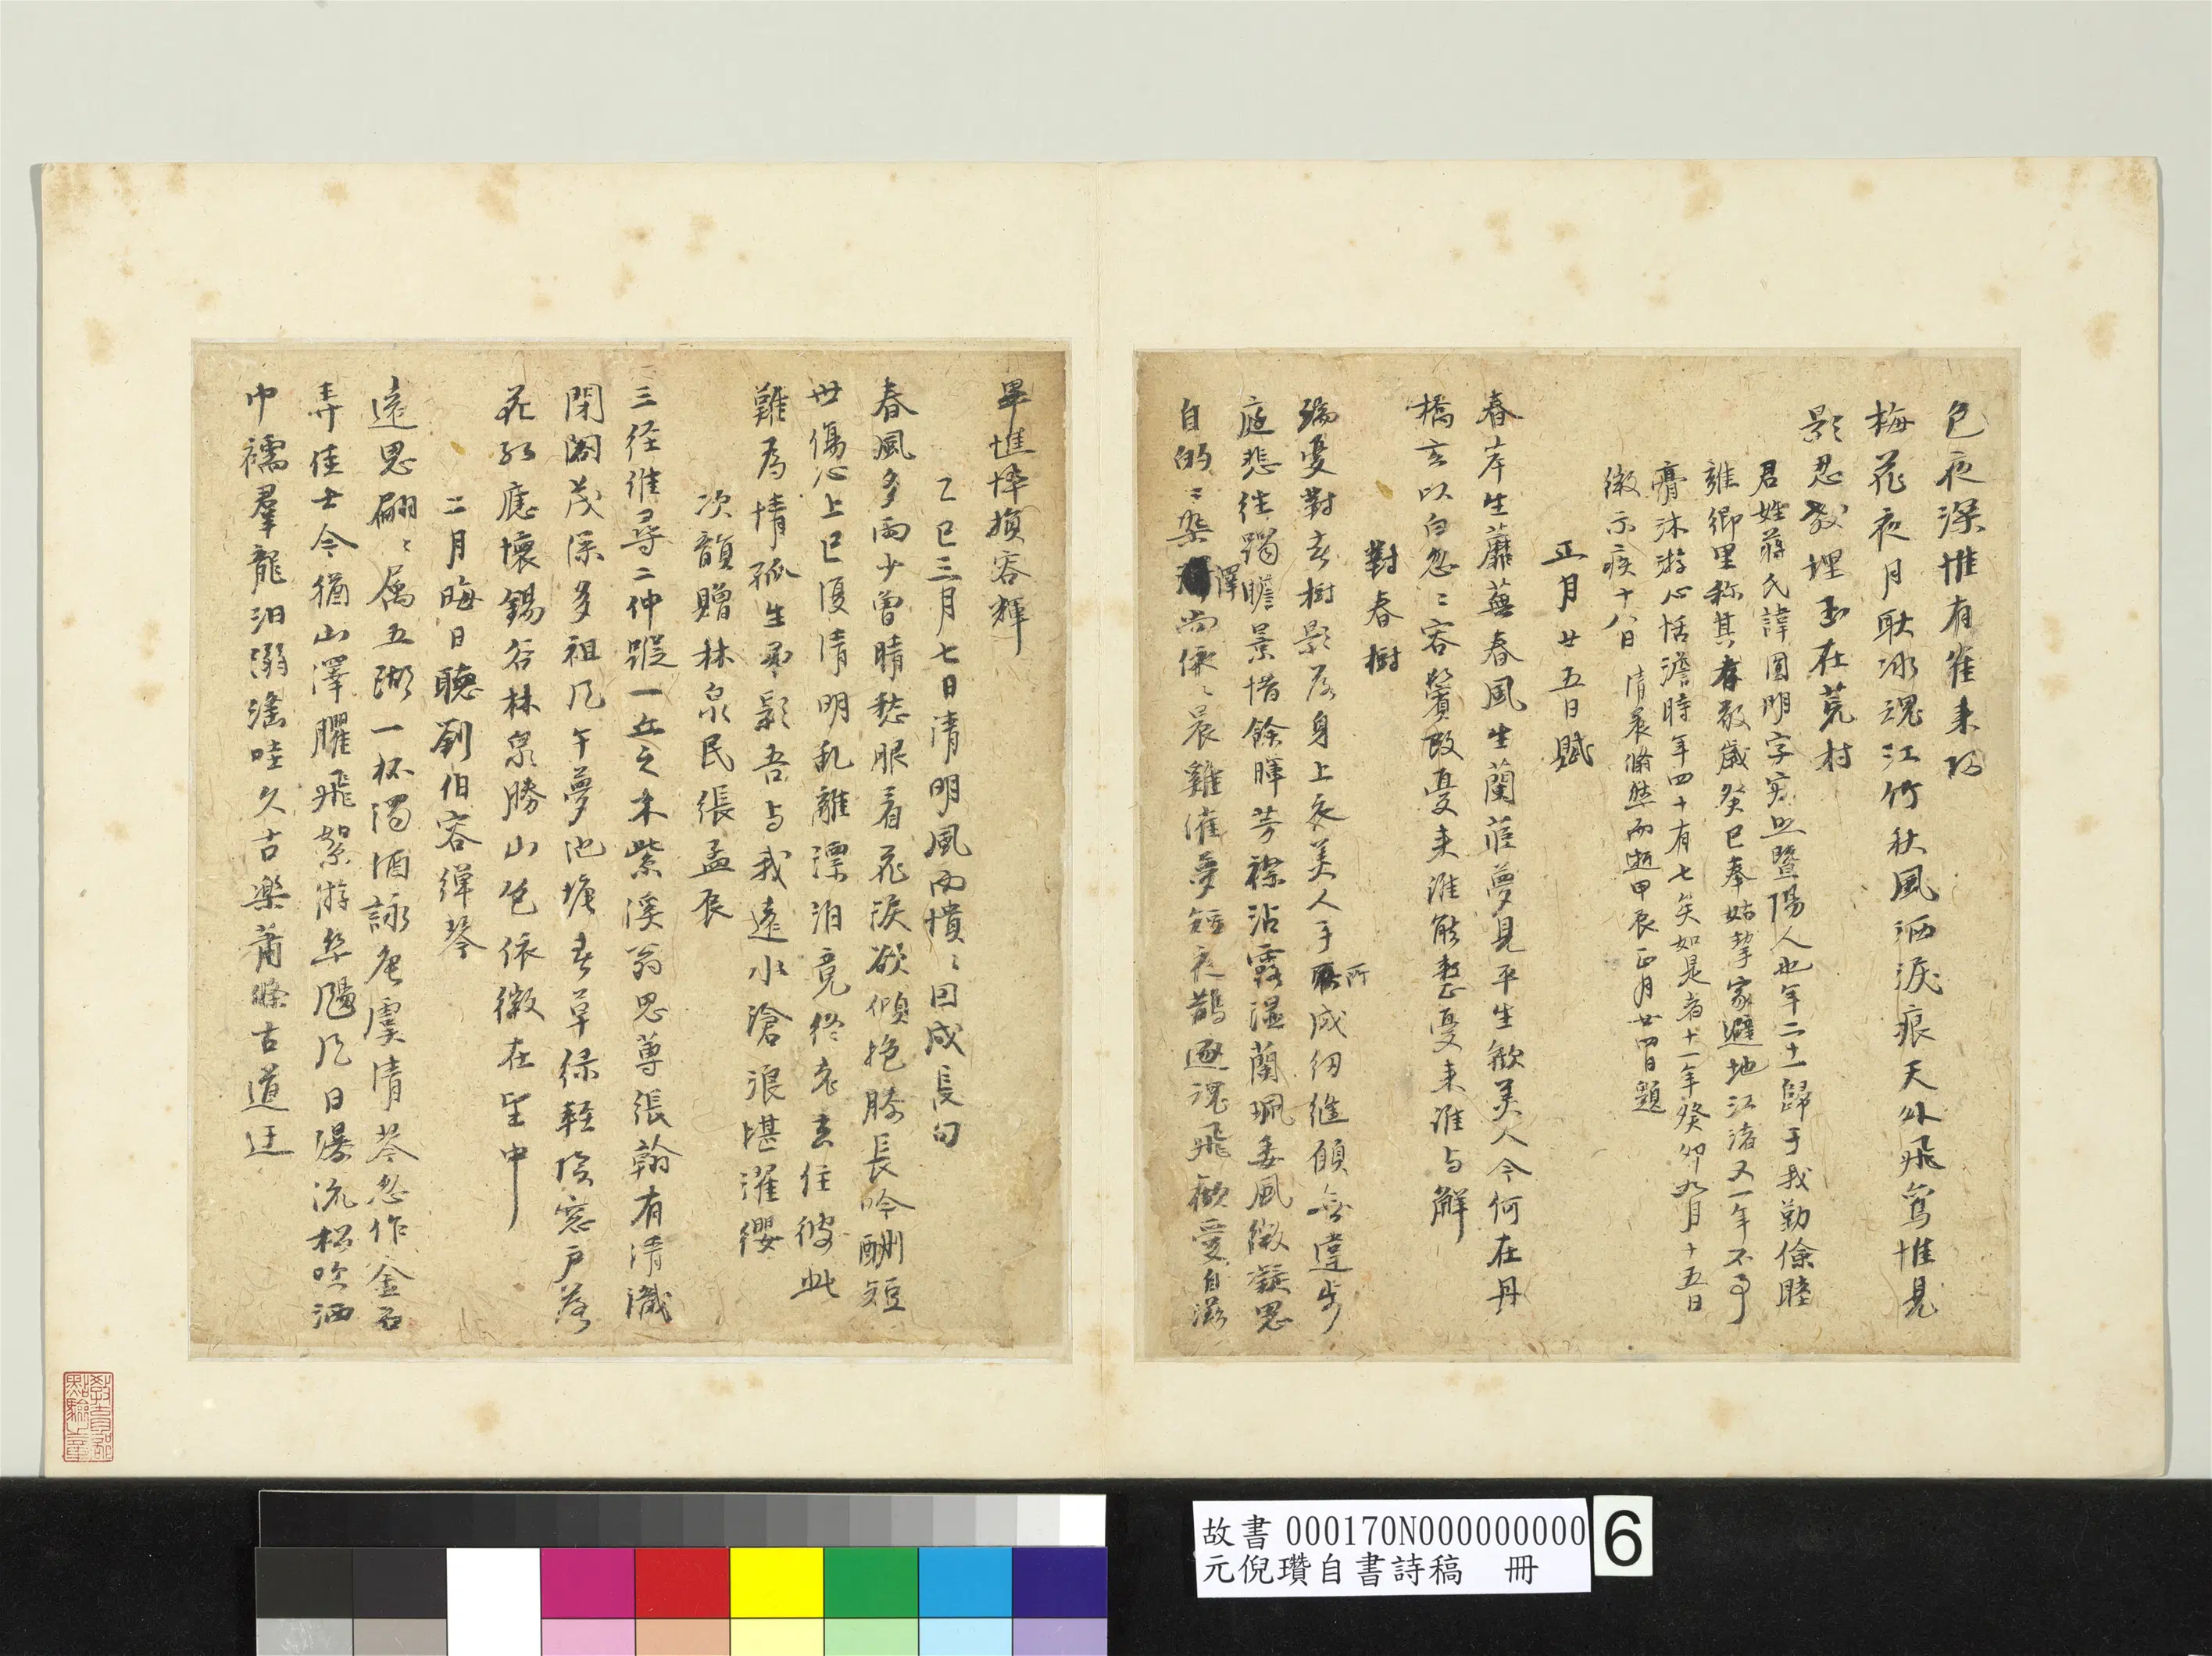 色夜深惟有雀來巧
梅花夜月耿冰魂江竹秋風洒淚痕天外飛鸞惟見
影忍教埋玉在荒村
君姓蔣氏諱圓明字寂照暨陽人也年二十一歸于我勤儉睦
雍鄉里称其孝敬歲癸巳奉姑挈家避地江渚又一年不事
膏沐游心恬澹時年四十有七矣如是者十一年癸卯九月十五日
微示疾十八日清晨翛然而逝甲辰正月廿四日題
正月廿五日賦
春岸生蘼蕪春風生蘭茝夢見平生歡美人今何在丹
橋玄以白忽〻容鬢改憂来誰能整憂来誰与解
對春樹
端憂對春樹影落身上衣美人手所成紉縫願無違步
庭悲往躅瞻景惜餘暉芳襟沾露濕蘭珮委風微凝思
自的〻染澤尚依〻晨雞催夢短夜鵲逐魂飛歡愛自茲
畢憔悴損容輝
乙巳三月七日清明風雨憒〻因成長句
春風多雨少曾晴愁眼看花淚欲傾抱膝長吟酬短
世傷心上巳復清明亂離漂泊竟終老去住彼此
難為情孤生吊影吾与我遠水滄浪堪濯纓
次韻贈林泉民張孟辰
三徑誰尋二仲蹤一丘之木紫溪翁思蓴張翰有清識
閉閣茂深多祖風午夢池塘春草綠輕陰窓户落
花紅應懷錫谷林泉勝山色依微在望中
二月晦日聽劉伯容彈琴
遠思翩〻属五湖一杯濁酒詠唐虞清琴忽作金石
弄佳士今猶山澤臞飛絮游絲颺風日瀑流松吹洒
巾襦羣龍汨溺滛哇久古樂蕭條古道迂
故書000170N000000000
元倪瓚自書詩稿 冊
6